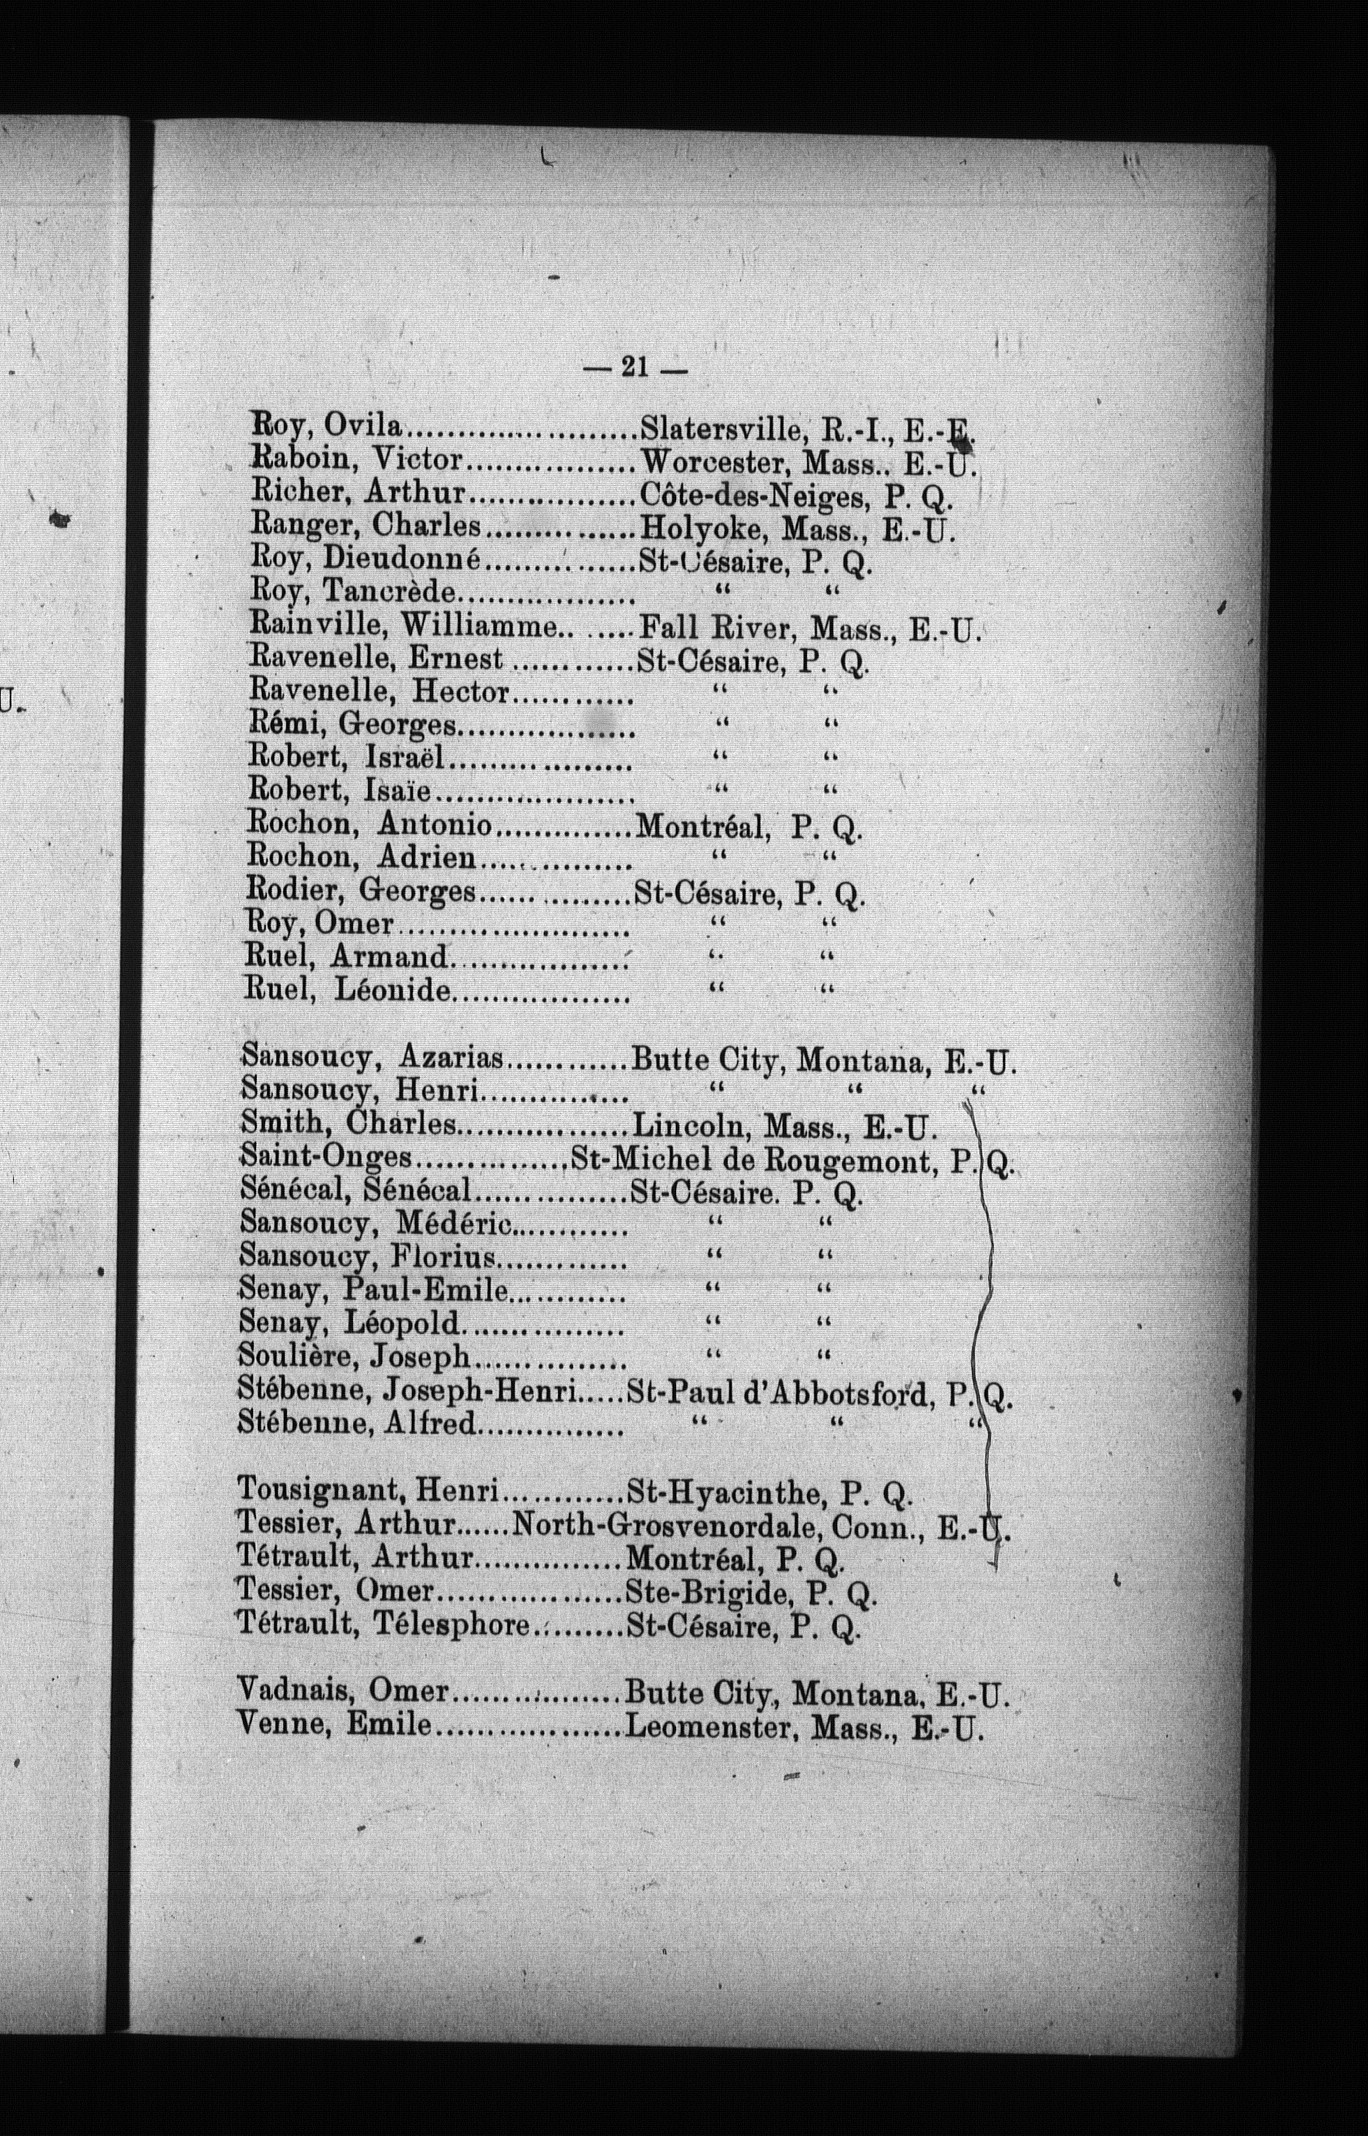 U.
— 21 —
Roy, Ovila.......................Slatersville, R.-I., E.-E.
Raboin, Victor.................Worcester, Mass.. E.-U.
Richer, Arthur.................Côte-des-Neiges, P. Q.
Ranger, Charles...............Holyoke, Mass., E.-U.
Roy, Dieudonné...............St-Césaire, P. Q.
Roy, Tancrède.................. “ “
Rainville, Williamme.. .....Fall River, Mass., E.-U.
Ravenelle, Ernest ............St-Césaire, P. Q.
Ravenelle, Hector............ “ “
Rémi, Georges.................. “ “
Robert, Israël.................. “ “
Robert, Isaïe.................... “ “
Rochon, Antonio..............Montréal, P. Q.
Rochon, Adrien............... “ “
Rodier, Georges...............St-Césaire, P. Q.
Roy, Omer....................... “ “
Ruel, Armand.................. “ “
Ruel, Léonide.................. “ “
Sansoucy, Azarias............Butte City, Montana, E.-U.
Sansoucy, Henri............... “ “ “
Smith, Charles.................Lincoln, Mass., E.-U.
Saint-Onges...............St-Michel de Rougemont, P. Q.
Sénécal, Sénécal...............St-Césaire. P. Q.
Sansoucy, Médéric............ “ “
Sansoucy, Florius............. “ “
Senay, Paul-Emile............ “ “
Senay, Léopold................ “ “
Soulière, Joseph............... “ “
Stébenne, Joseph-Henri.....St-Paul d'Abbotsford, P. Q.
Stébenne, Alfred............... “ “ “
Tousignant, Henri............St-Hyacinthe, P. Q.
Tessier, Arthur......North-Grosvenordale, Conn., E.-U.
Tétrault, Arthur...............Montréal, P. Q.
Tessier, Omer..................Ste-Brigide, P. Q.
Tétrault, Télesphore.........St-Césaire, P. Q.
Vadnais, Omer.................Butte City, Montana, E.-U.
Venne, Emile...................Leomenster, Mass., E.-U.